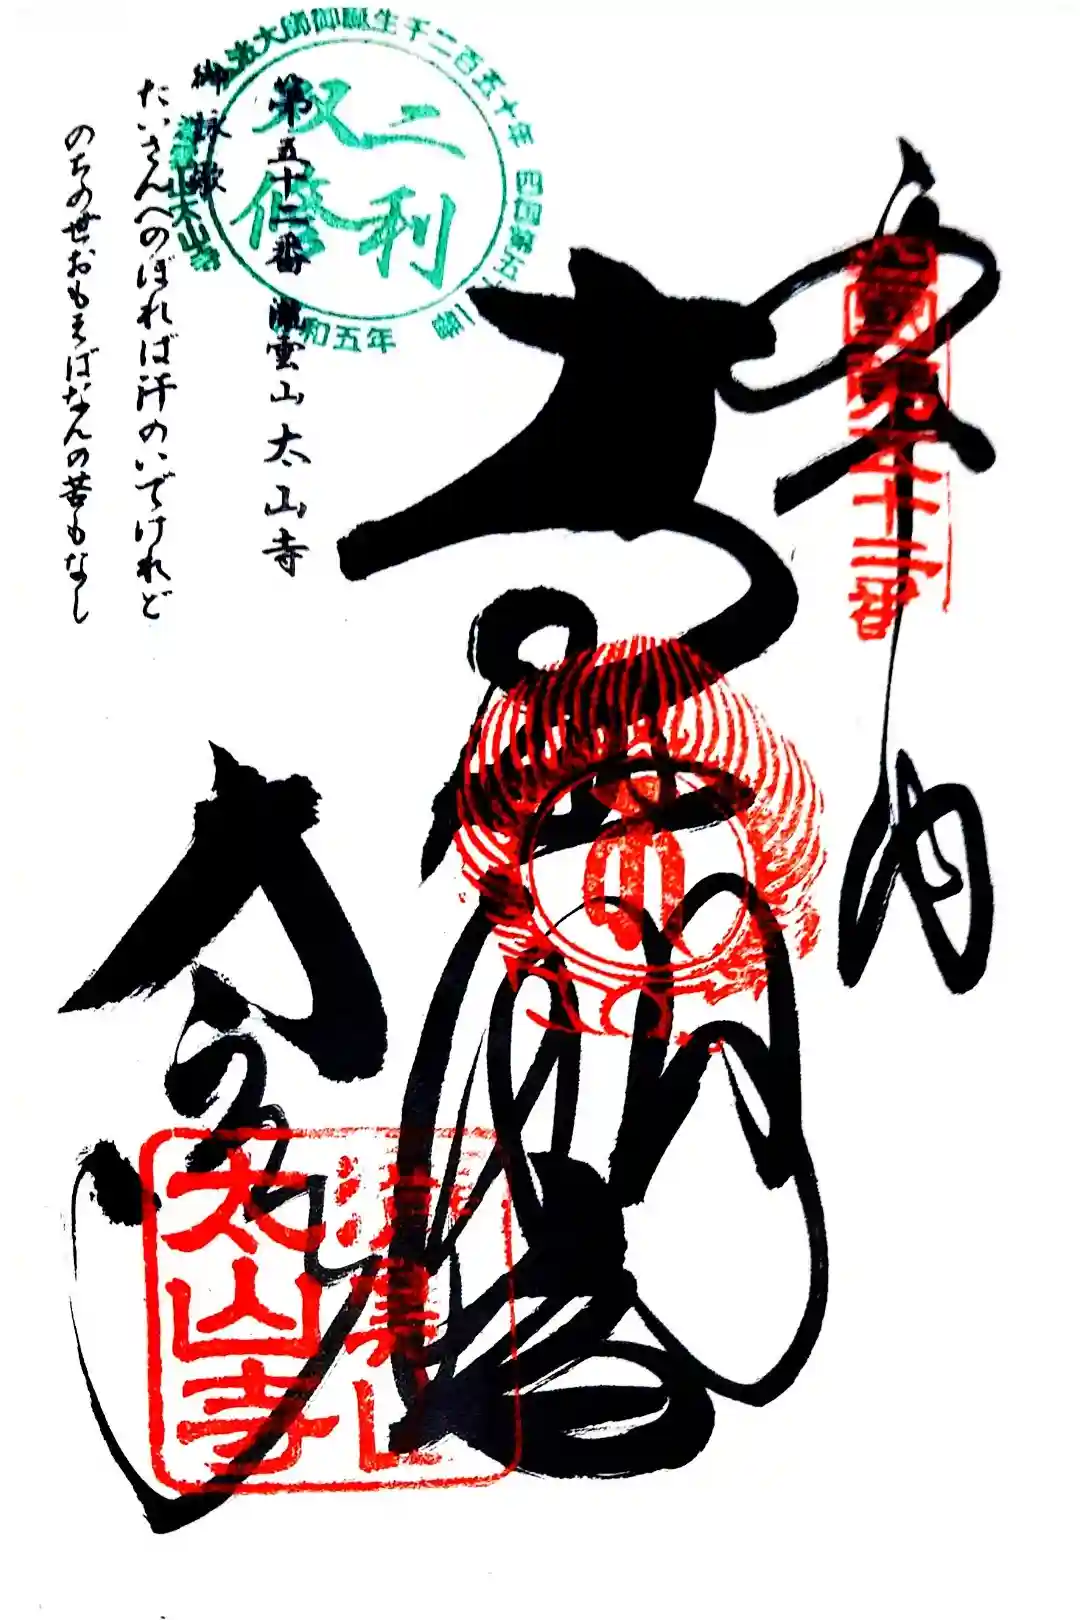 奉納
四國第五十二番
本尊
大悲殿
太山寺
瀧雲山
太山寺
第五十二番 瀧雲山 太山寺
御詠歌
たいさんへのぼれば汗のいでけれど
のちの世おもえばなんの苦もなし
弘法大師御誕生千二百五十年
四国第五十二番
太山寺
和五年
二利
双修